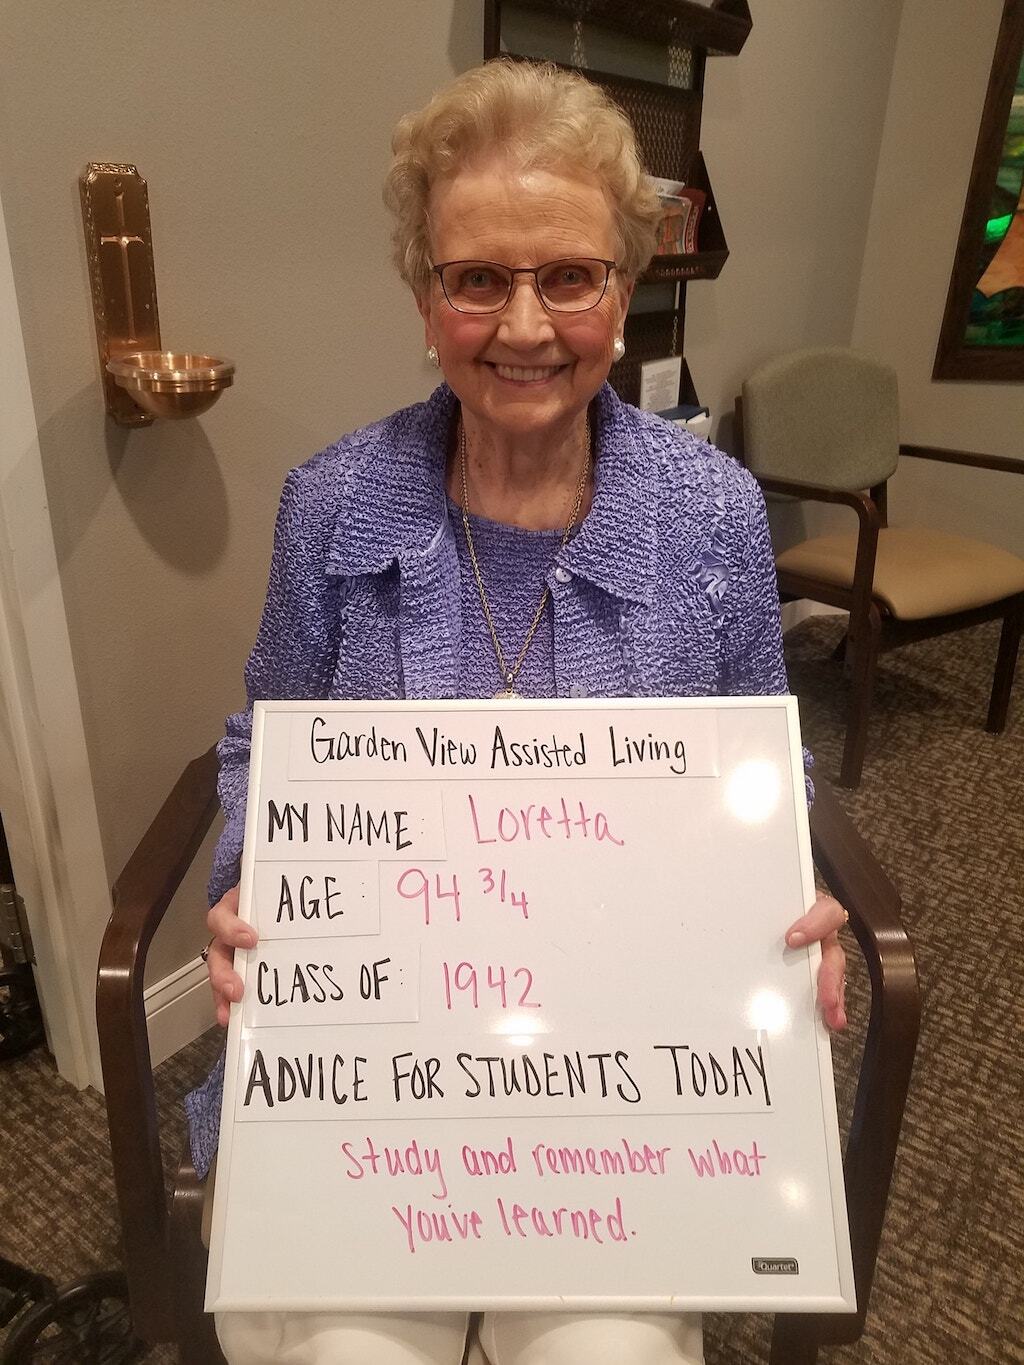 Garden View Assisted Living
MY NAME: Loretta
AGE: 94 3/4
CLASS OF: 1942
ADVICE FOR STUDENTS TODAY
Study and remember what
you've learned.
Quartet